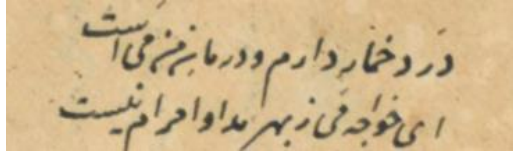 درد خمار دارم و درمان من می است
ای خواجه می ز بهر مداوا حرام نیست